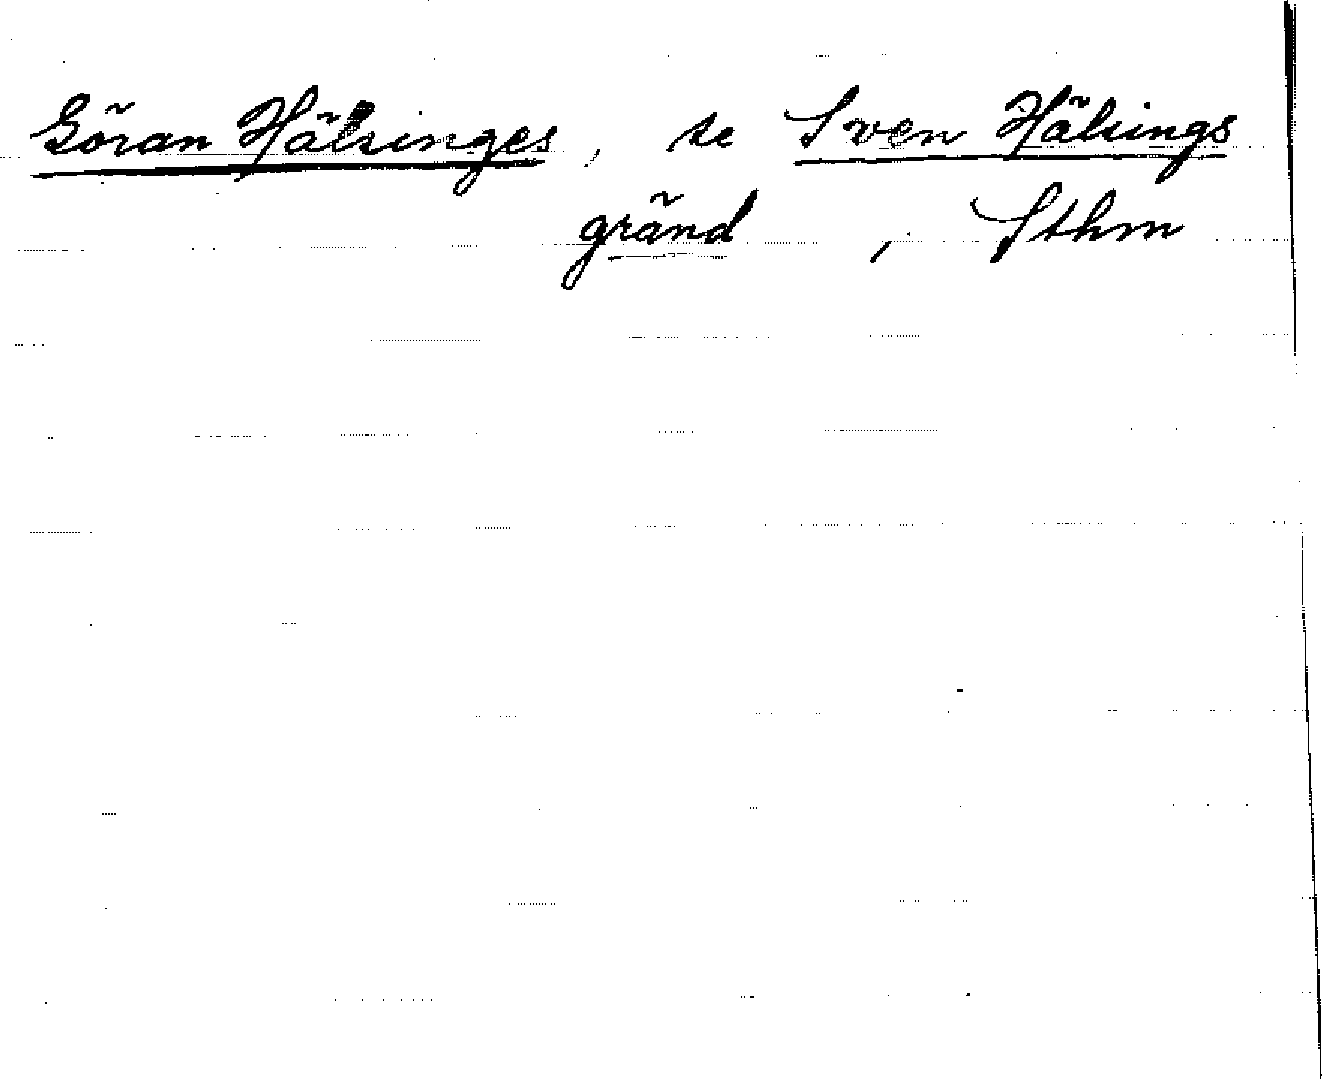 Göran Hälsinges, se Sven Hälsings
gränd, Sthm